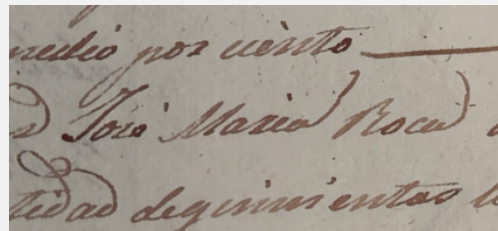 medio por ciento
José Maria Roca
tidad de quinientos